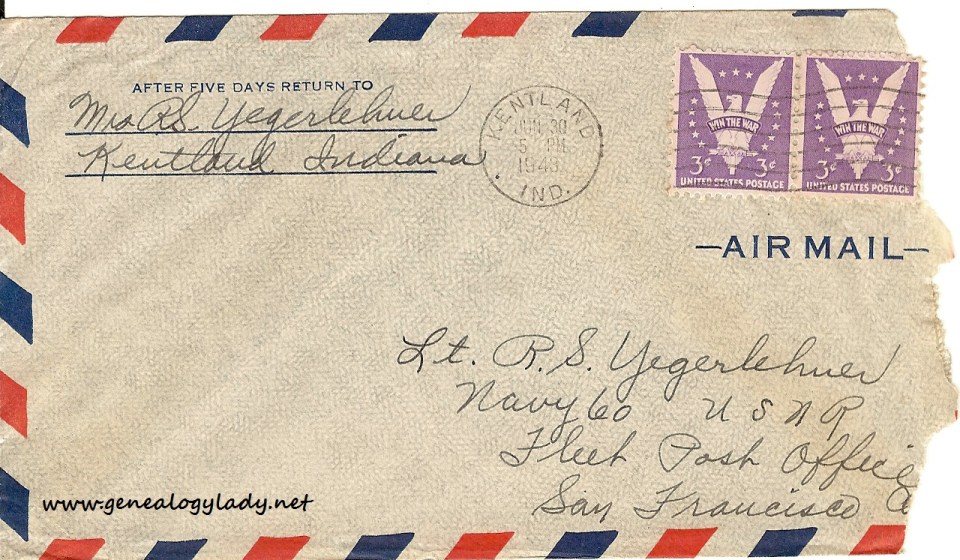 AFTER FIVE DAYS RETURN TO
Mrs R.S. Yegerlehner
Kentland Indiana
KENTLAND
JUN 30
5 PM
1943
IND.
WIN THE WAR
3¢ 3¢
UNITED STATES POSTAGE
WIN THE WAR
3¢ 3¢
UNITED STATES POSTAGE
AIR MAIL
Lt. R. S. Yegerlehner
Navy 60 U S N R
Fleet Post Office
San Francisco
www.genealogylady.net